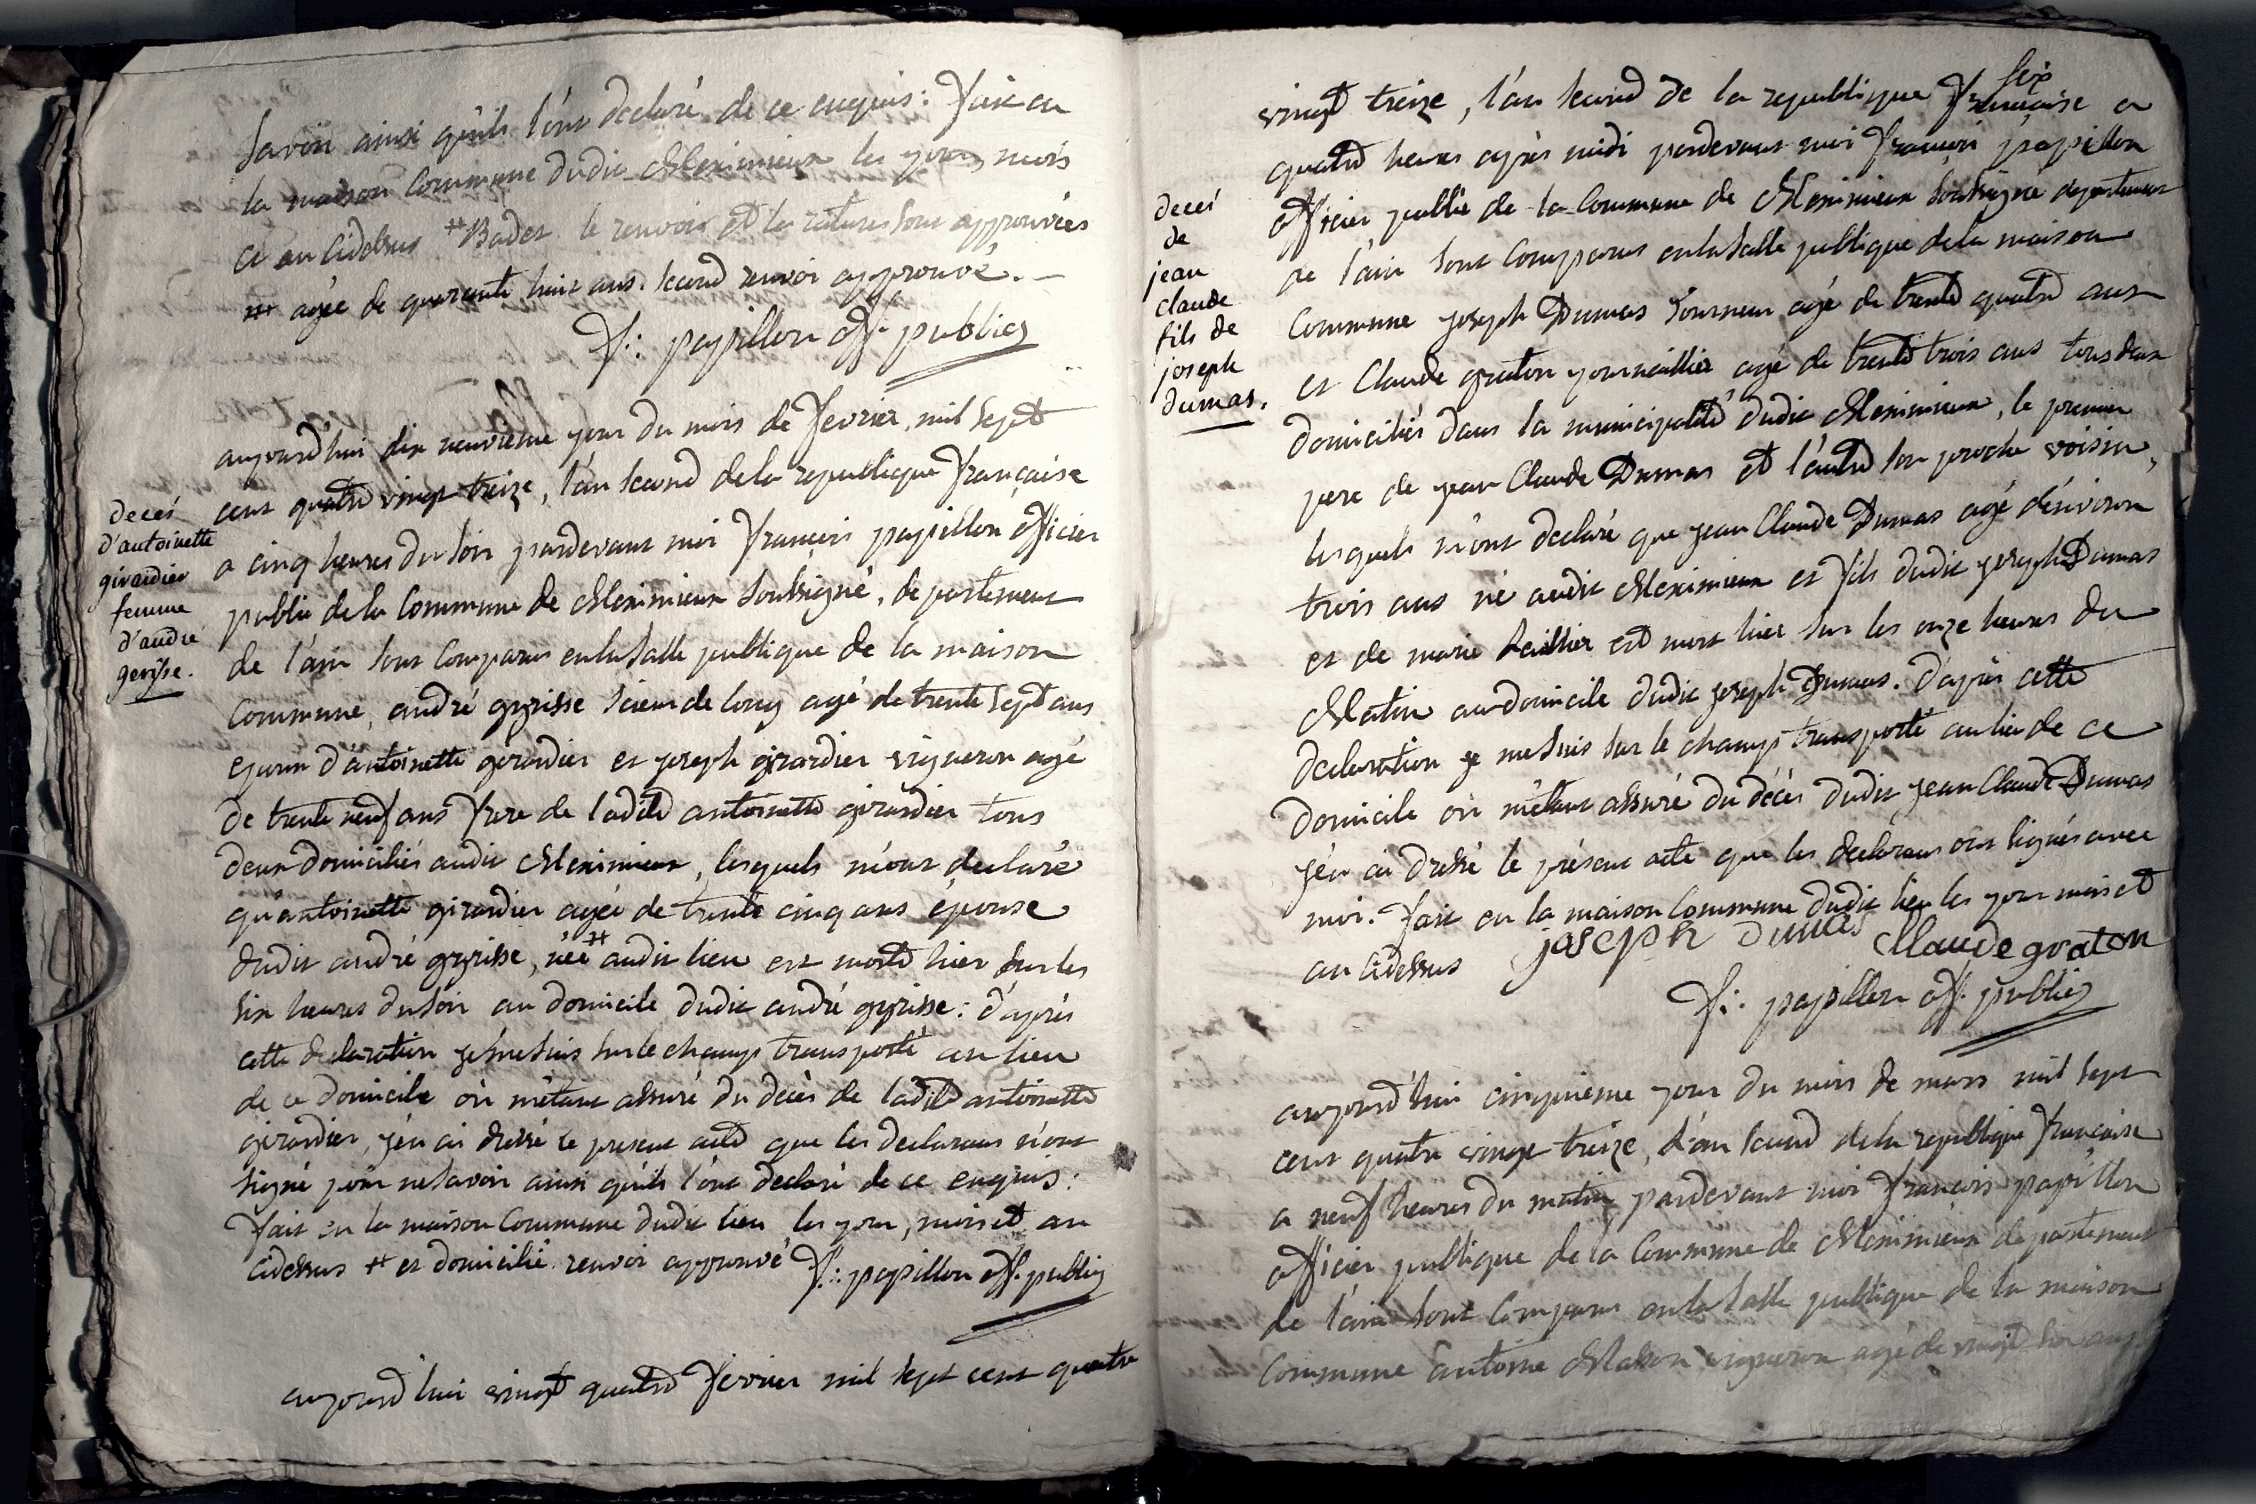 savoir ainsi qu'ils l'ont declaré de ce enquis: fait en
la maison Commune dudit Meximieux les jour, mois
et an cidessus # Badet le renvoi et la rature sont approuvées
## agée de quarante huit ans. second renvoi approuvé.
f.: papillon off. public
aujourd'hui dix neuvieme jour du mois de fevrier, mil sept
cent quatre vingt treize, l'an second de la republique française
a cinq heures du soir pardevant moi françois papillon officier
public de la Commune de Meximieux soussigné, departement
de l'ain sont Comparus en la salle publique de la maison
Commune, andré gyrisse scieur de long agé de trente sept ans
epoux d'antoinette girardier et joseph girardier vigneron agé
de trente neuf ans frere de ladite antoinette girardier tous
deux domiciliés audit Meximieux, lesquels m'ont declaré
qu'antoinette girardier agée de trente cinq ans épouse
dudit andré gyrisse, née # audit lieu est morte hier sur les
six heures du soir au domicile dudit andré gyrisse: d'après
cette declaration je me suis sur le champ transporté au lieu
de ce domicile où m'étant assuré du décès de ladite antoinette
girardier, j'en ai dressé le present acte que les declarans n'ont
signé pour ne savoir ainsi qu'ils l'ont declaré de ce enquis:
fait en la maison Commune dudit lieu les jour, mois et an
cidessus # et domicilié. renvoi approuvé f.: papillon off. public
aujourd'hui vingt quatre fevrier mil sept cent quatre
decès
d'antoinette
girardier
femme
d'andré
gerisse.
vingt treize, l'an second de la republique française a
six
quatre heures après midi pardevant moi françois papillon
officier public de la Commune de Meximieux soussigné departement
de l'ain sont Comparus en la salle publique de la maison
Commune joseph Dumas tourneur agé de trente quatre ans
et Claude graton journaillier agé de trente trois ans tous deux
domiciliés dans la municipalité dudit Meximieux, le premier
pere de jean Claude Dumas et l'autre son proche voisin,
lesquels m'ont declaré que jean Claude Dumas agé d'environ
trois ans né audit Meximieux et fils dudit joseph Dumas
et de marie est mort hier sur les onze heures du
Matin au domicile dudit joseph Dumas. d'après cette
declaration je me suis sur le champ transporté au lieu de ce
domicile où m'étant assuré du décès dudit jean Claude Dumas
j'en ai dressé le présent acte que les declarans ont signés avec
moi. fait en la maison Commune dudit lieu les jour mois et
an cidessus joseph dumas Claude graton
f.: papillon off. public
aujourd'hui cinquieme jour du mois de mars mil sept
cent quatre vingt treize, l'an second de la republique française
a neuf heures du matin pardevant moi françois papillon
officier publique de la Commune de Meximieux departement
de l'ain sont Comparus en la salle publique de la maison
Commune antoine Masson vigneron agé de vingt six ans
decés
de
jean
claude
fils de
joseph
dumas.